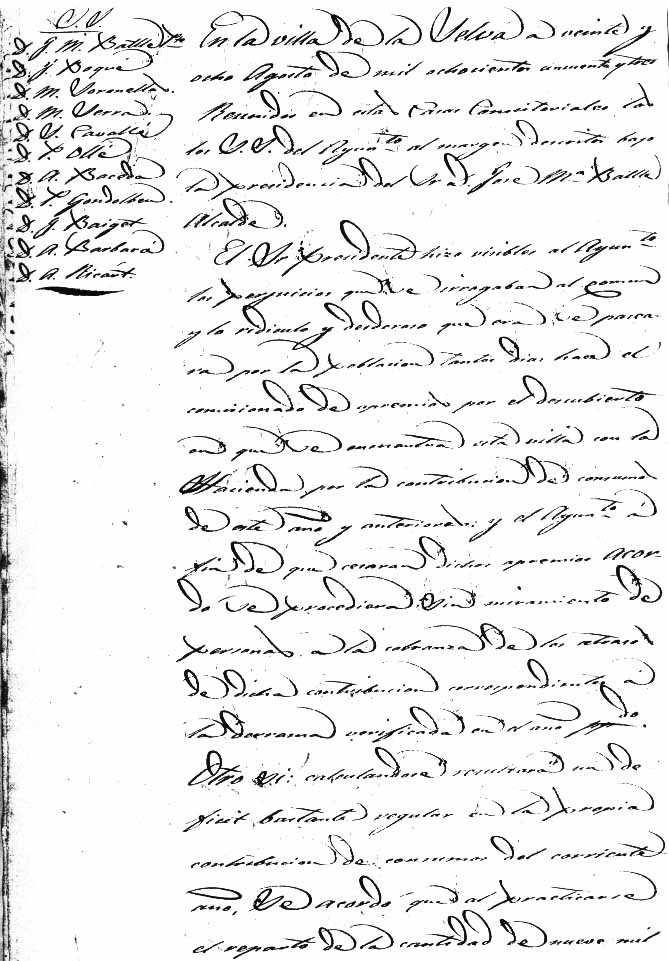 S. S.
D. J. M. Batlle Pte
D. J. Boqué
D. M. Voronella.
D. M. Serra
D. S. Cavallé
D. P. Ollé
D. A. Baceda
D. P. Gondolbeu.
D. J. Baiget
D. A. Barbará
D. A. Ricart.
En la villa de la Selva a veinte y
ocho Agosto de mil ochocientos cincuenta y tres
Reunidos en estas Casas Consistoriales los
los S. S. del Ayunto al margen descritos bajo
la presidencia del Sr. D. Jose Ma Batlle
Alcalde.
El Sr. presidente hizo visibles al Ayunto
los perjuicios que se irrogaban al comun
y lo ridiculo y desdoroso que era se pasea-
ra por la poblacion tantos dias hace el
comisionado de apremios por el descubierto
en que se encuentra esta villa con la
Hacienda por la contribucion de consumos
de este año y anteriores: y el Ayunto á
fin de que cesaran dichos apremios acor-
dó se procediera sin miramiento de
personas a la cobranza de los atrasos
de dicha contribucion correspondientes a
la derrama verificada en el año ppdo.
Otro si: calculandose resultará un de
ficit bastante regular en la propia
contribucion de consumos del corriente
año, Se acordó que al practicarse
el reparto de la cantidad de nueve mil